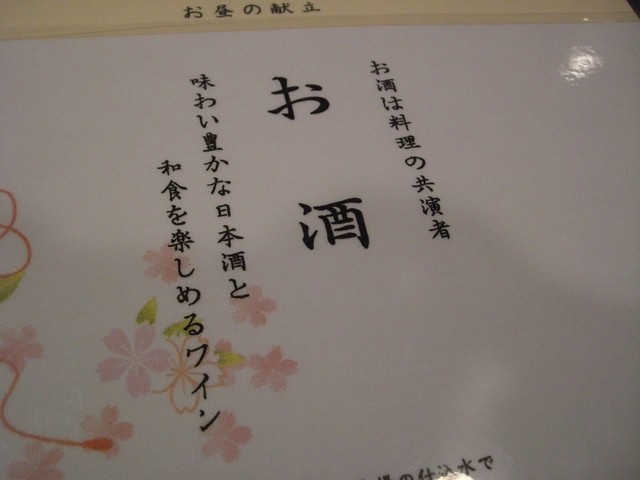 お昼の献立
お酒は料理の共演者
お酒
味わい豊かな日本酒と
和食を楽しめるワイン
の仕込水で